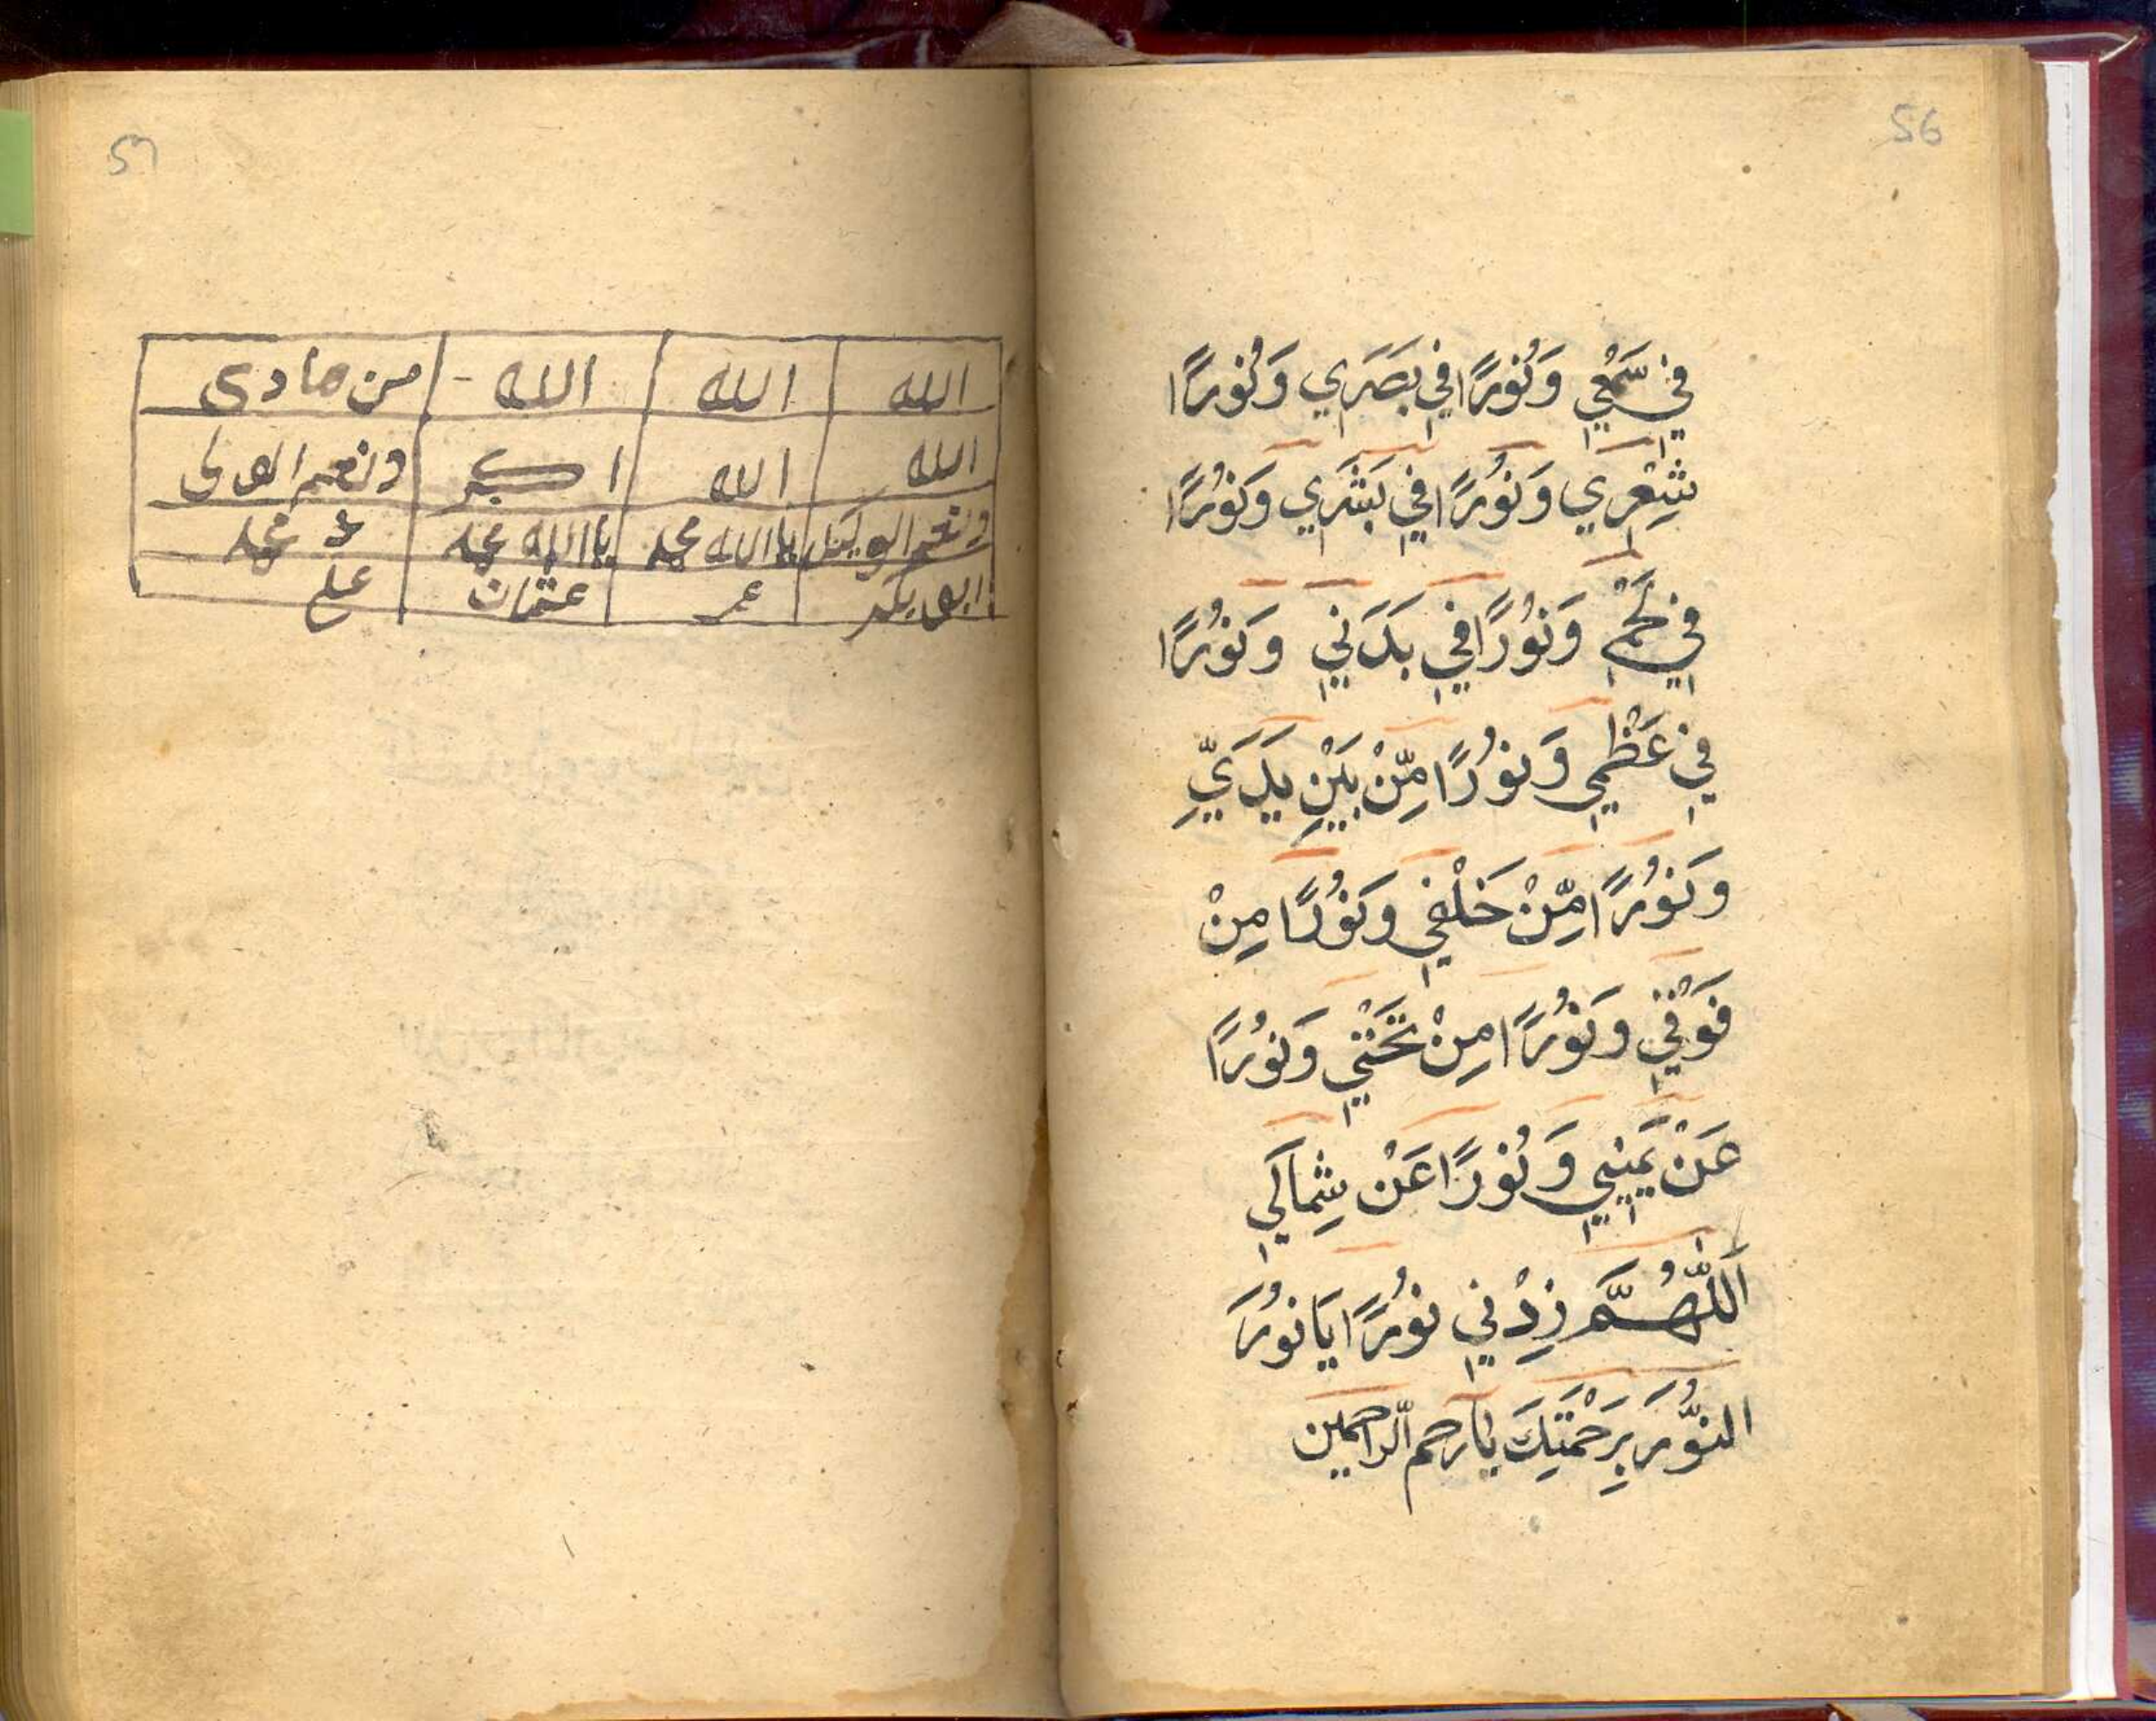 56
فِي سَمْعِي وَنُورًا فِي بَصَرِي وَنُورًا
شِعْرِي وَنُورًا فِي بَشَرِي وَنُورًا
فِي لَحْمِي وَنُورًا فِي بَدَنِي وَنُورًا
فِي عَظْمِي وَنُورًا مِّنْ بَيْنِ يَدَيَّ
وَنُورًا مِّنْ خَلْفِي وَنُورًا مِنْ
فَوْقِي وَنُورًا مِنْ تَحْتِي وَنُورًا
عَنْ يَمِينِي وَنُورًا عَنْ شِمَالِي
اَللّٰهُمَّ زِدْنِي نُورًا يَا نُورَ
النُّورِ بِرَحْمَتِكَ يَا رحم الرّاحمين
57
الله الله الله من هادى
الله الله اكبر ونعم المولى
ونعم الوكيل يا الله محمد يا الله محمد محمد
ابو بكر عمر عثمان على